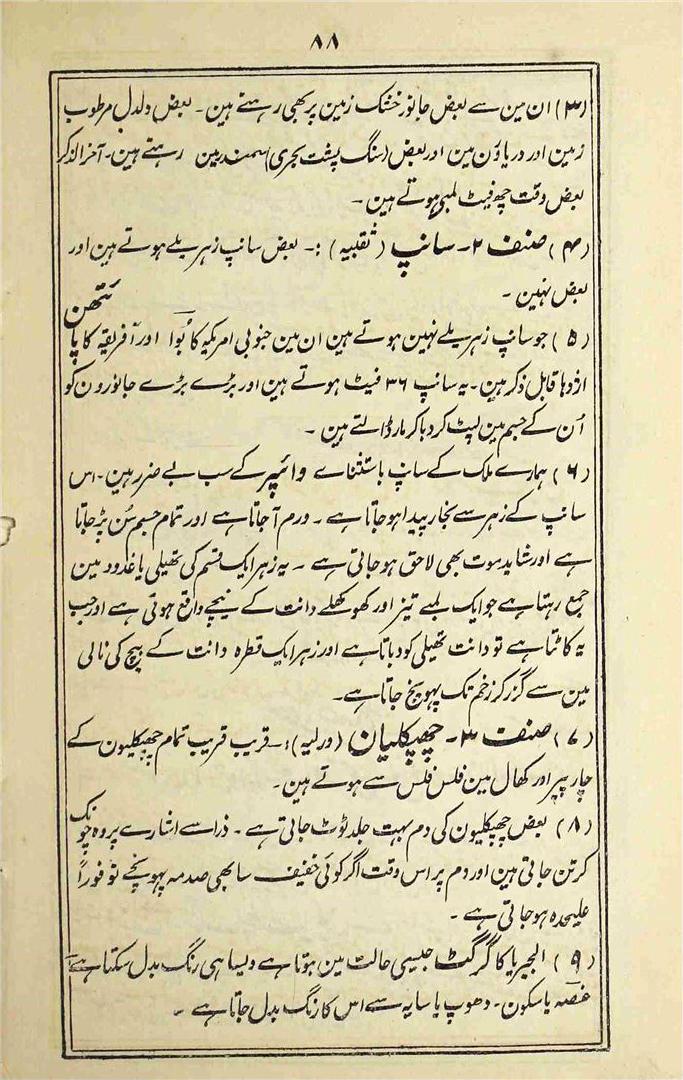 ۸۸
(۳) ان مین سے بعض جانور خشک زمین پر بھی رہتے ہین۔ بعض دلدل مرطوب
زمین اور دریاؤن مین اور بعض (سنگ پشت بحری) سمندر مین رہتے ہین۔ آخر الذکر
بعض وقت چھ فیٹ لمبی ہوتے ہین۔
(۴) صنف ۲۔ سانپ (ثقبیہ) :۔ بعض سانپ زہریلے ہوتے ہین اور
بعض نہین۔
(۵) جو سانپ زہریلے نہین ہوتے ہین ان مین جنوبی امریکہ کا بُوَا اور آفریقہ کا پائتھن
اژدہا قابل ذکر ہین۔ یہ سانپ ۳۶ فیٹ ہوتے ہین اور بڑے بڑے جانورون کو
اُن کے جسم مین لپٹ کر دبا کر مار ڈالتے ہین۔
(۶) ہمارے ملک کے سانپ باستثناے وائپر کے سب بے ضرر ہین۔ اس
سانپ کے زہر سے بخار پیدا ہوجاتا ہے۔ ورم آجاتا ہے اور تمام جسم سُن پڑجاتا
ہے اور شاید موت بھی لاحق ہوجاتی ہے۔ یہ زہر ایک قسم کی تھیلی یا غدود مین
جمع رہتا ہے جو ایک لمبے تیز اور کھوکھلے دانت کے نیچے واقع ہوتی ہے اور جب
یہ کاٹتا ہے تو دانت تھیلی کو دباتا ہے اور زہر ایک قطرہ دانت کے بیچ کی نالی
مین سے گزر کر زخم تک پہونچ جاتا ہے۔
(۷) صنف ۳۔ چھپکلیان (ورلیہ) :۔ قریب قریب تمام چھپکلیون کے
چار پیر اور کھال مین فلس فلس سے ہوتے ہین۔
(۸) بعض چھپکلیون کی دم بہت جلد ٹوٹ جاتی ہے۔ ذرا سے اشارے پر وہ چونک
کر تن جاتی ہین اور دم پر اس وقت اگر کوئی خفیف سا بھی صدمہ پہونچے تو فوراً
علیحدہ ہوجاتی ہے۔
(۹) الجیریا کا گرگٹ جیسی حالت مین ہوتا ہے ویسا ہی رنگ بدل سکتا ہے
غصہ یا سکون۔ دھوپ یا سایہ سے اس کا رنگ بدل جاتا ہے۔